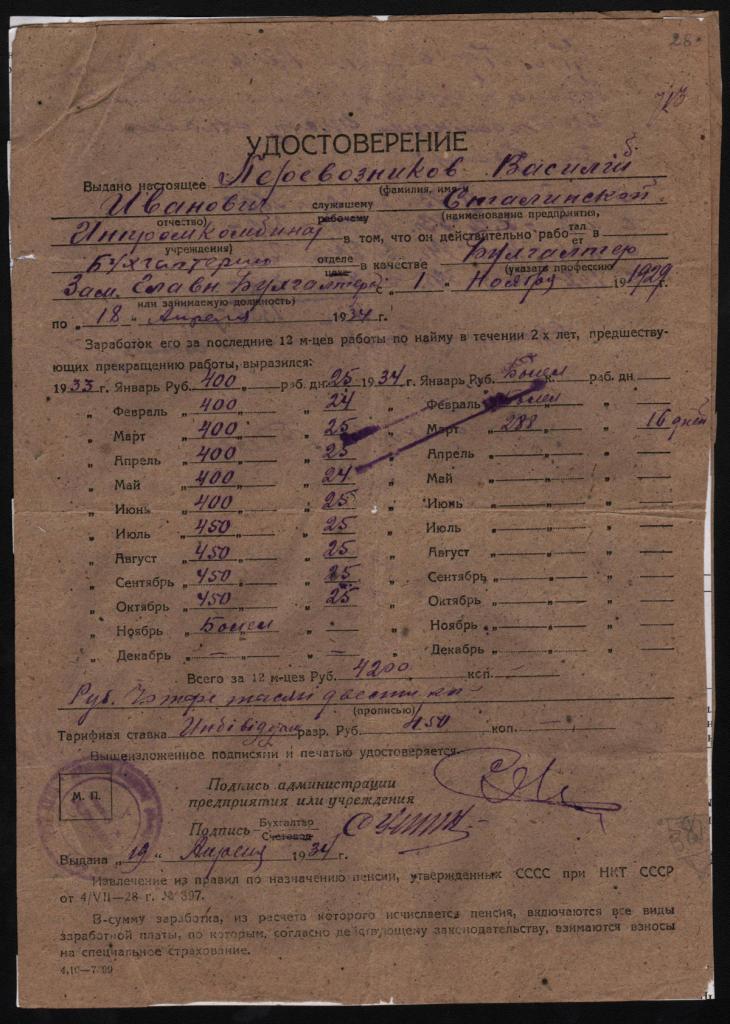 26
713
УДОСТОВЕРЕНИЕ
Выдано настоящее Перевозников Василій
(фамилия, имя и
Иванович служащему рабочему Сталинской
отчество) (наименование предприятия,
в том, что он действительно рабо тал ет
учреждения) Булгалтер
Бухгалтерию отделе цехе в качестве (указать профессию)
Зам. Главн Булгалтера с „ 1 „ Ноября 1929 г.
или занимаемую должность)
по „ 18 „ Апреля 1934 г.
Заработок его за последние 12 м-цев работы по найму в течении 2 х лет, предшеству-
ющих прекращению работы, выразился:
1933 г. Январь Руб. 400 „ раб. дн. 25 1934 г. Январь Руб. Болел к. раб. дн
„ Февраль „ 400 „ „ 24 „ Февраль „ болел „ „
„ Март „ 400 „ „ 25 „ Март „ 288 „ „ 16 дней
„ Апрель „ 400 „ „ 25 „ Апрель „ „ „
„ Май „ 400 „ „ 24 „ Май „ „ „
„ Июнь „ 400 „ „ 25 „ Июнь „ „ „
„ Июль „ 450 „ „ 25 „ Июль „ „ „
„ Август „ 450 „ „ 25 „ Август „ „ „
„ Сентябрь „ 450 „ „ 25 „ Сентябрь „ „ „
„ Октябрь „ 450 „ „ 25 „ Октябрь „ „ „
„ Ноябрь „ Болел „ „ — „ Ноябрь „ „ „
„ Декабрь „ — „ „ — „ Декабрь „ „ „
Всего за 12 м-цев Руб. 4200 коп. —
Руб. двести
(прописью)
Тарифная ставка разр. Руб. 450 коп. —
Вышеизложенное подписями и печатью удостоверяется.
М. П.
Подпись администрации
предприятия или учреждения
Подпись Бухгалтер Счетовод
Выдана „ 19 „ Апреля 1934 г.
Извлечение из правил по назначению пенсии, утвержденных СССС при НКТ СССР
от 4/VII—28 г. № 397.
В-сумму заработка, из расчета которого исчисляется пенсия, включаются все виды
заработной платы, по которым, согласно действующему законодательству, взимаются взносы
на специальное страхование.